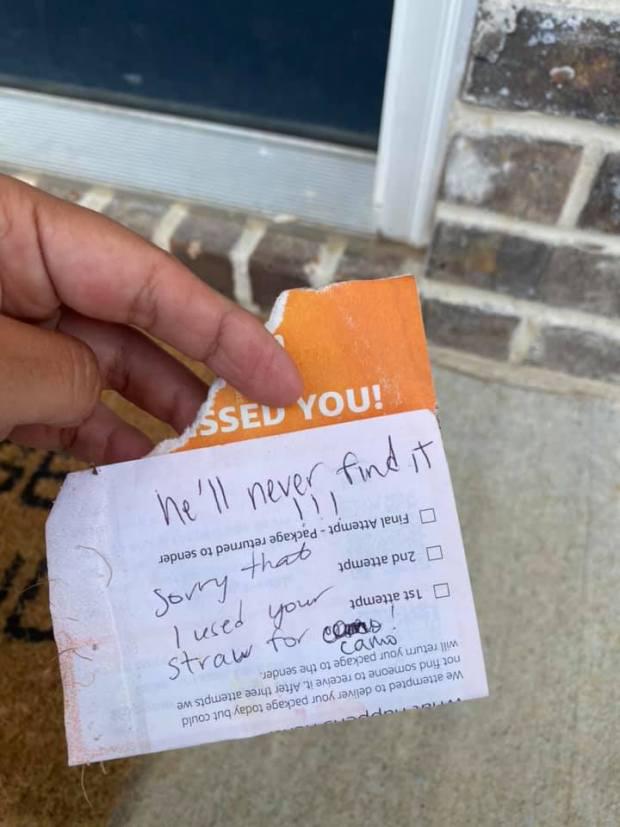 SSED YOU!
he'll never find it
!!!
sorry that
I used your
straw for camo!
We attempted to deliver your package today but could
not find someone to receive it. After three attempts we
will return your package to the sender.
1st attempt
2nd attempt
Final Attempt - Package returned to sender